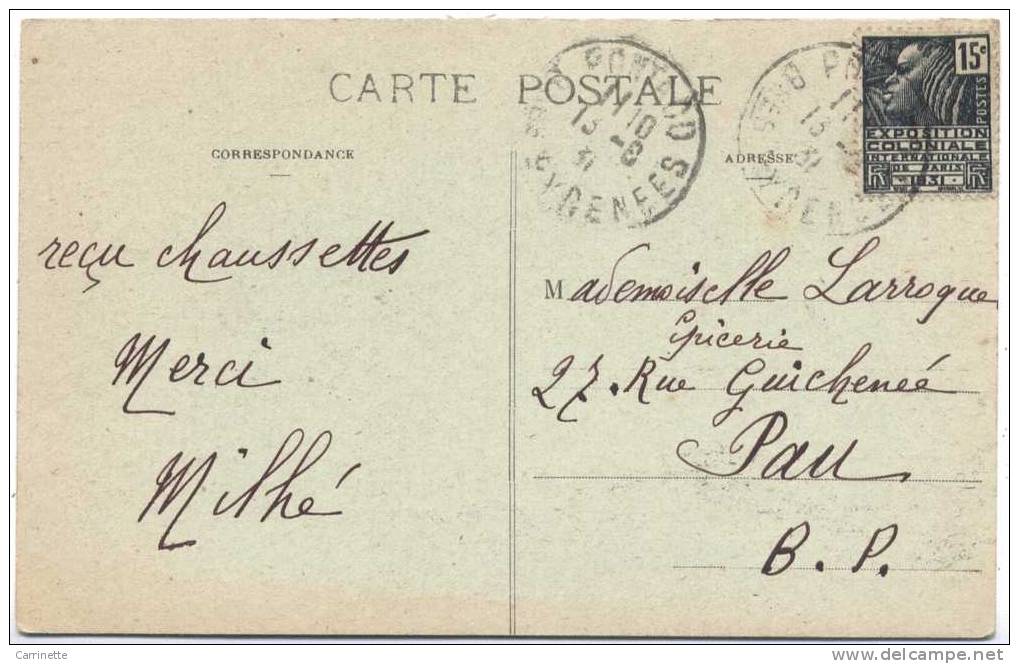 CARTE POSTALE
CORRESPONDANCE
reçu chaussettes
Merci
Milhé
ADRESSE
Mademoiselle Larroque
épicerie
27. Rue Guichenéé
Pau
B. P.
15c
POSTES
EXPOSITION
COLONIALE
INTERNATIONALE
DE PARIS
1931
11 10
13 -8
31
PYRENEES
Carrinette
www.delcampe.net